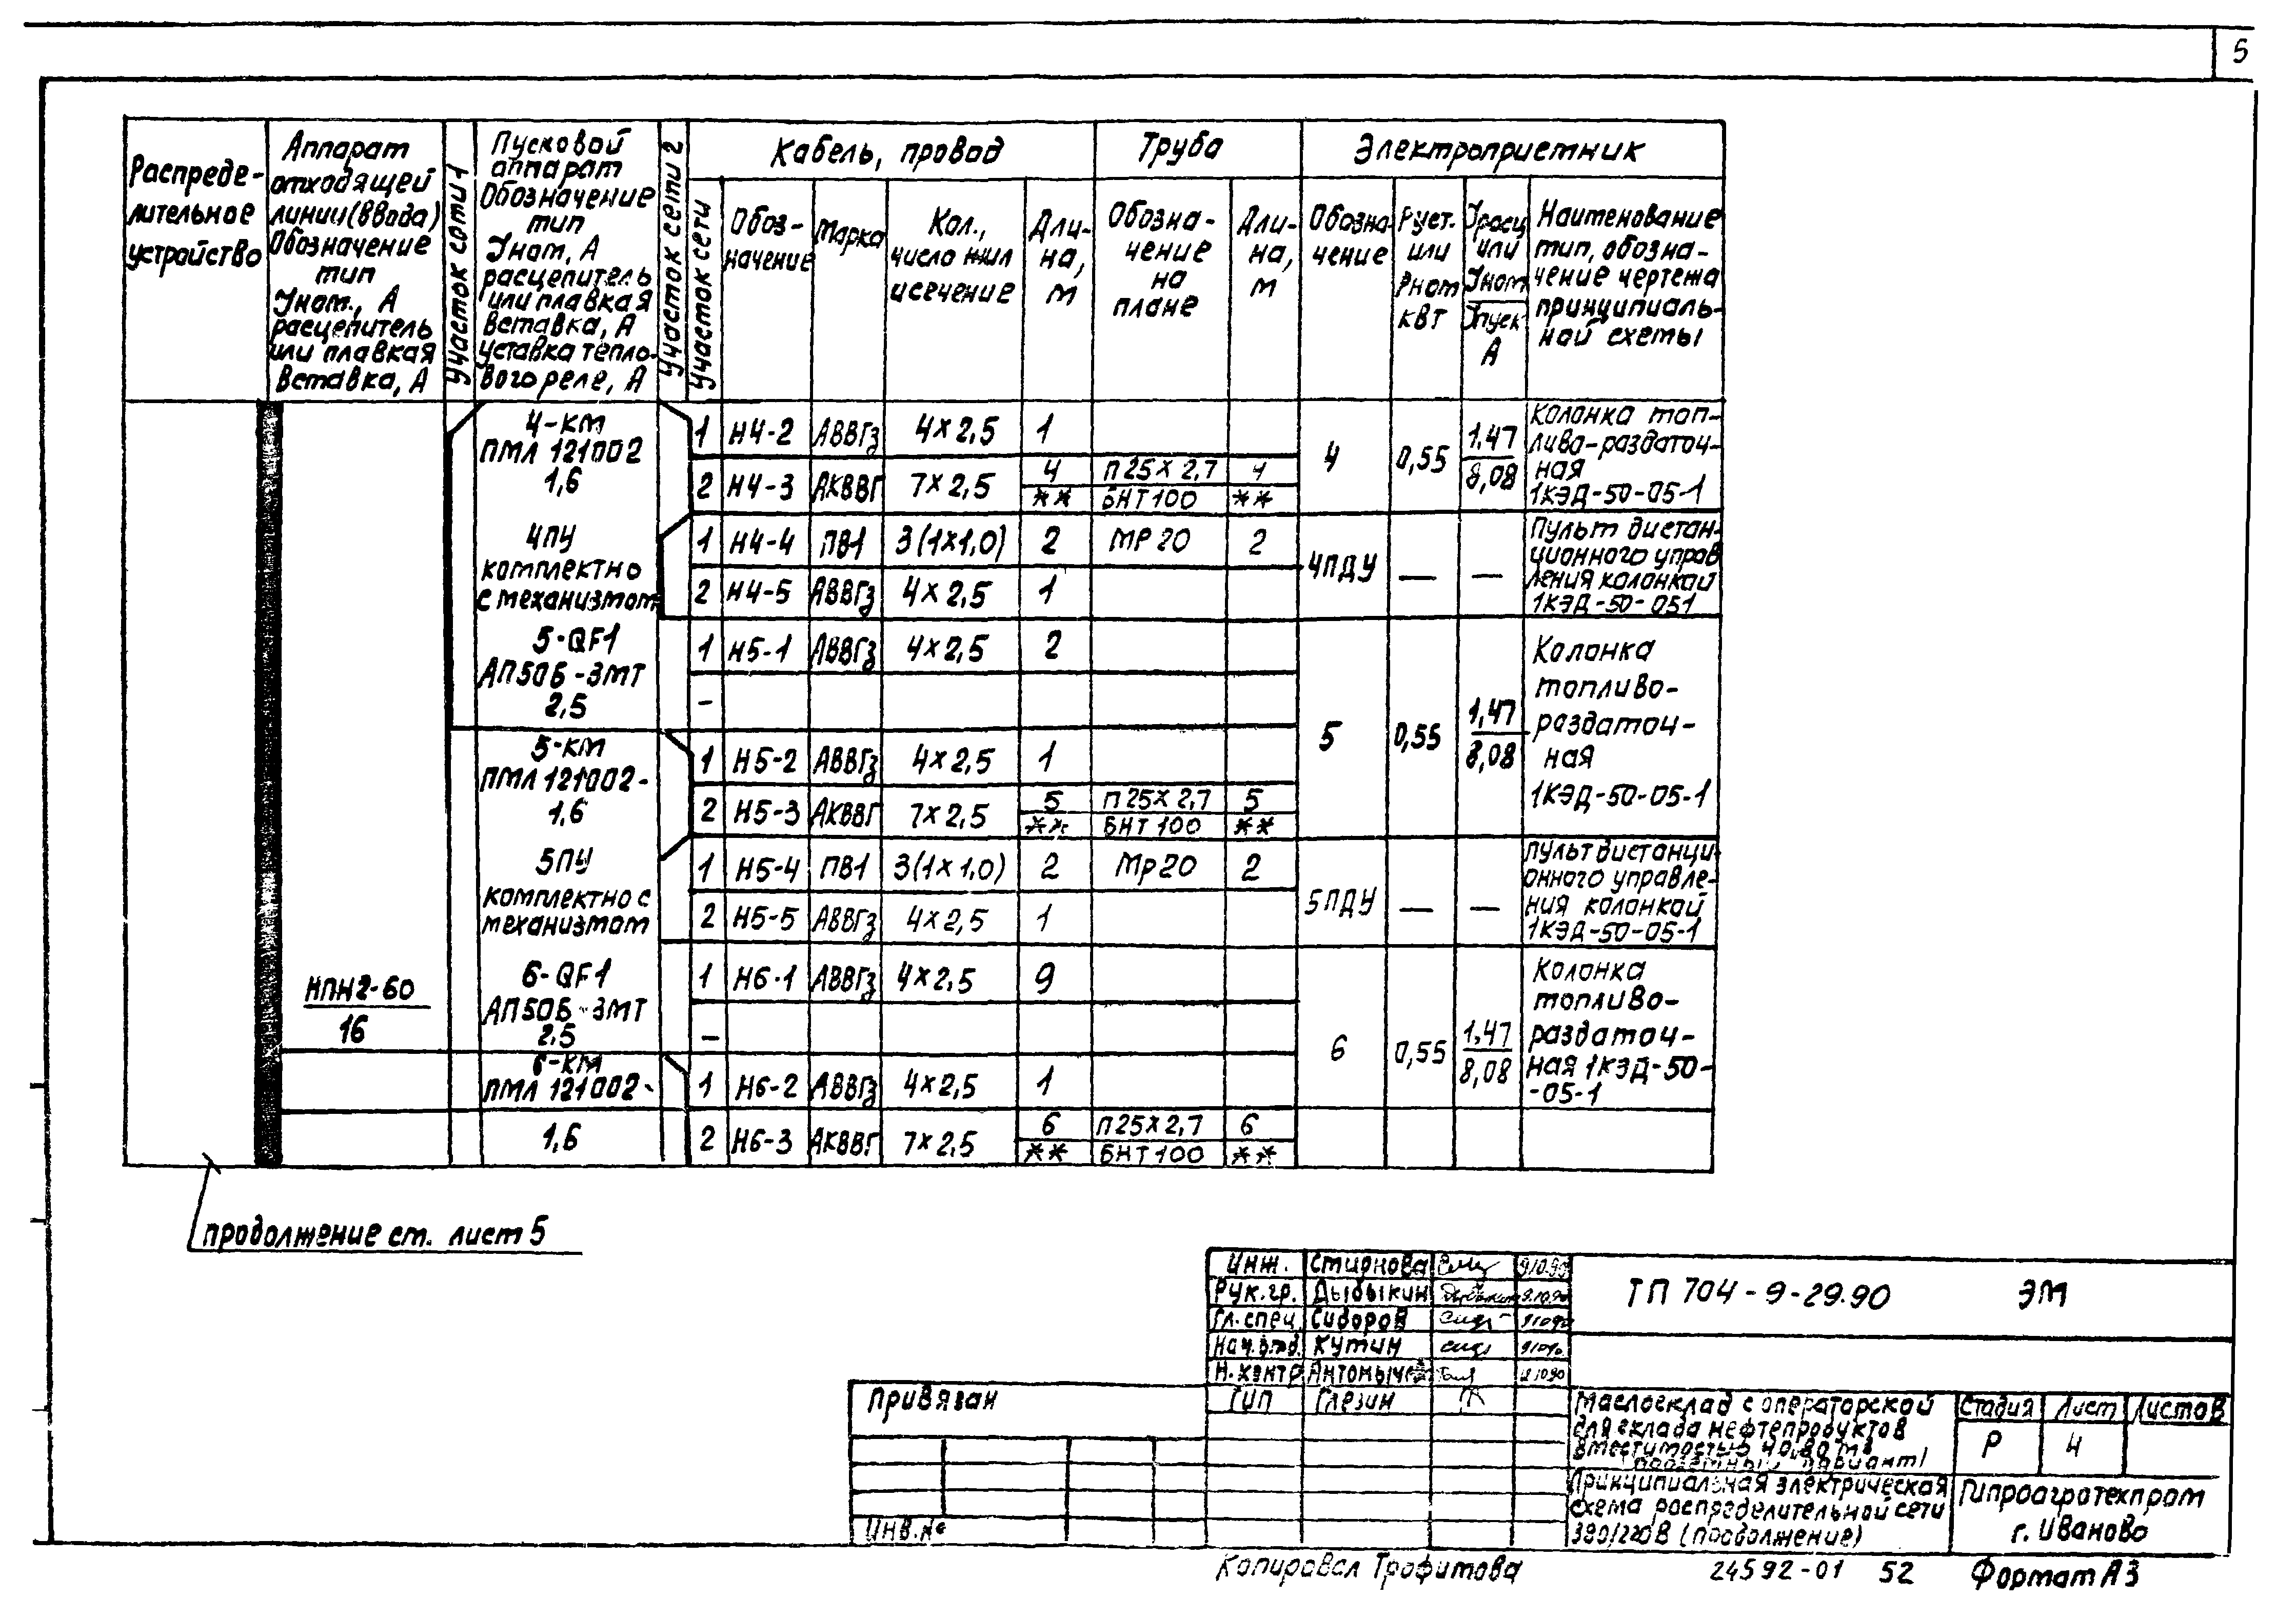 5
Распреде-
лительное
устройство
Аппарат
отходящей
линии (ввода)
Обозначение
тип
Iном., А
расцепитель
или плавкая
вставка, А
Участок сети 1
Пусковой
аппарат
Обозначение
тип
Iном, А
расцепитель
или плавкая
вставка, А
уставка тепло-
вого реле, А
Участок сети 2
Участок сети
Кабель, провод
Обоз-
начение
Марка
Кол.,
число жил
и сечение
Дли-
на,
м
Труба
Обозна-
чение
на
плане
Дли-
на,
м
Электроприемник
Обозна-
чение
Руст.
или
Рном
кВт
Iрасч
или
Iном
Iпуск
А
Наименование
тип, обозна-
чение чертежа
принципиаль-
ной схемы
4-КМ
ПМЛ 121002
1,6
1 Н4-2 АВВГз 4×2,5 1
2 Н4-3 АКВВГ 7×2,5 4 П25×2,7 4
** БНТ100 **
4 0,55 1,47
8,08
Колонка топ-
ливо-раздаточ-
ная
1КЭД-50-05-1
4ПУ
комплектно
с механизмом
1 Н4-4 ПВ1 3(1×1,0) 2 МР20 2
2 Н4-5 АВВГз 4×2,5 1
4ПДУ — —
Пульт дистан-
ционного управ
ления колонкой
1КЭД-50-051
5-QF1
АП50Б-3МТ
2,5
1 Н5-1 АВВГз 4×2,5 2
-
5-КМ
ПМЛ 121002-
1,6
1 Н5-2 АВВГз 4×2,5 1
2 Н5-3 АКВВГ 7×2,5 5 П25×2,7 5
** БНТ100 **
5 0,55 1,47
8,08
Колонка
топливо-
раздаточ-
ная
1КЭД-50-05-1
5ПУ
комплектно с
механизмом
1 Н5-4 ПВ1 3(1×1,0) 2 Мр20 2
2 Н5-5 АВВГз 4×2,5 1
5ПДУ — —
Пульт дистанци-
онного управле-
ния колонкой
1КЭД-50-05-1
НПН2-60
16
6-QF1
АП50Б-3МТ
2,5
1 Н6-1 АВВГз 4×2,5 9
-
6-КМ
ПМЛ 121002-
1,6
1 Н6-2 АВВГз 4×2,5 1
2 Н6-3 АКВВГ 7×2,5 6 П25×2,7 6
** БНТ100 **
6 0,55 1,47
8,08
Колонка
топливо-
раздаточ-
ная 1КЭД-50-
-05-1
продолжение см. лист 5
Инж. Смирнова
Рук.гр. Дыбыкин
Гл.спец. Сидоров
Нач.отд. Кутин
Н.контр
ГИП Глезин
ТП 704-9-29.90 ЭМ
Привязан
Инв.№
Маслосклад с операторской
для склада нефтепродуктов
вместимостью 40,80 м³
(подземный вариант)
Стадия Лист Листов
Р 4
Принципиальная электрическая
схема распределительной сети
380/220В (продолжение)
Гипроагротехпром
г. Иваново
Копировал Трофимова
24592-01 52 Формат А3